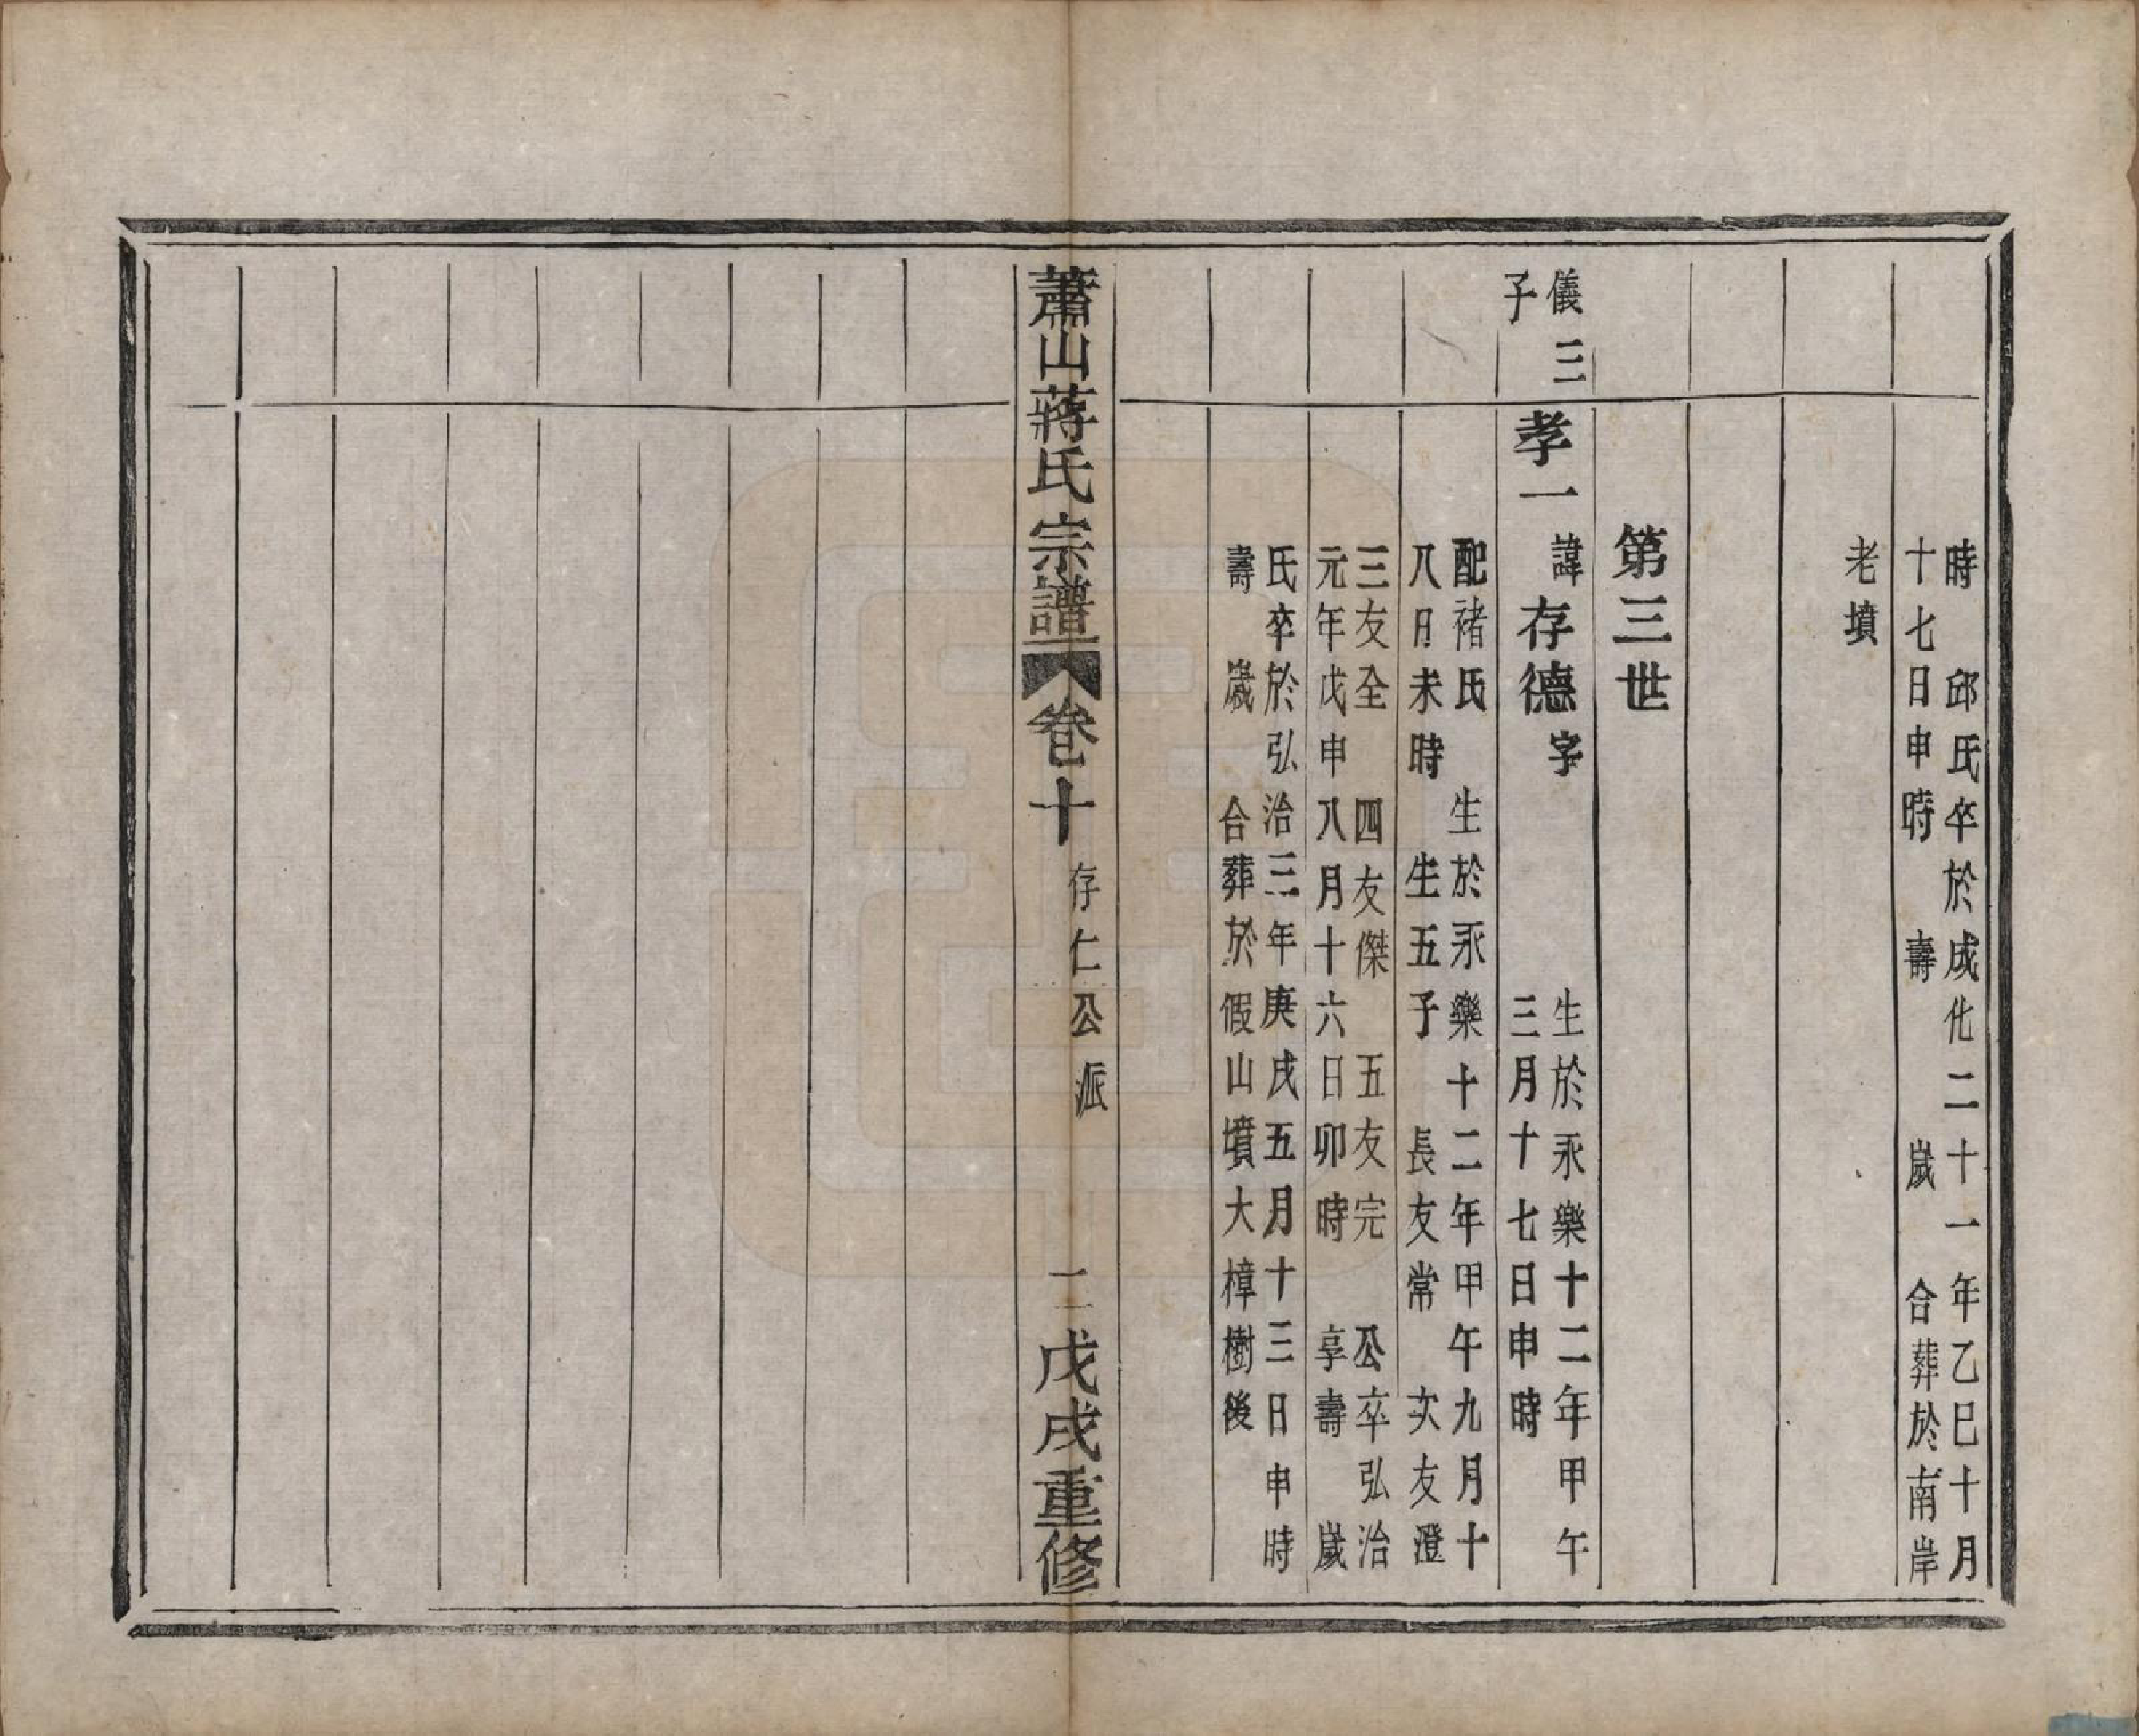 時　邱氏卒於成化二十一年乙巳十月
十七日申時　壽　　歲　合葬於南岸
老墳
第三世
儀三
子
孝一　諱存德字
生於永樂十二年甲午
三月十七日申時
配褚氏　生於永樂十二年甲午九月十
八日未時　生五子　長友常　次友澄
三友全　四友傑　五友完　公卒弘治
元年戊申八月十六日卯時　享壽　歲
氏卒於弘治三年庚戌五月十三日申時
壽　歲　合葬於假山墳大樟樹後
蕭山蔣氏宗譜　卷十　存仁公派　二　戊戌重修